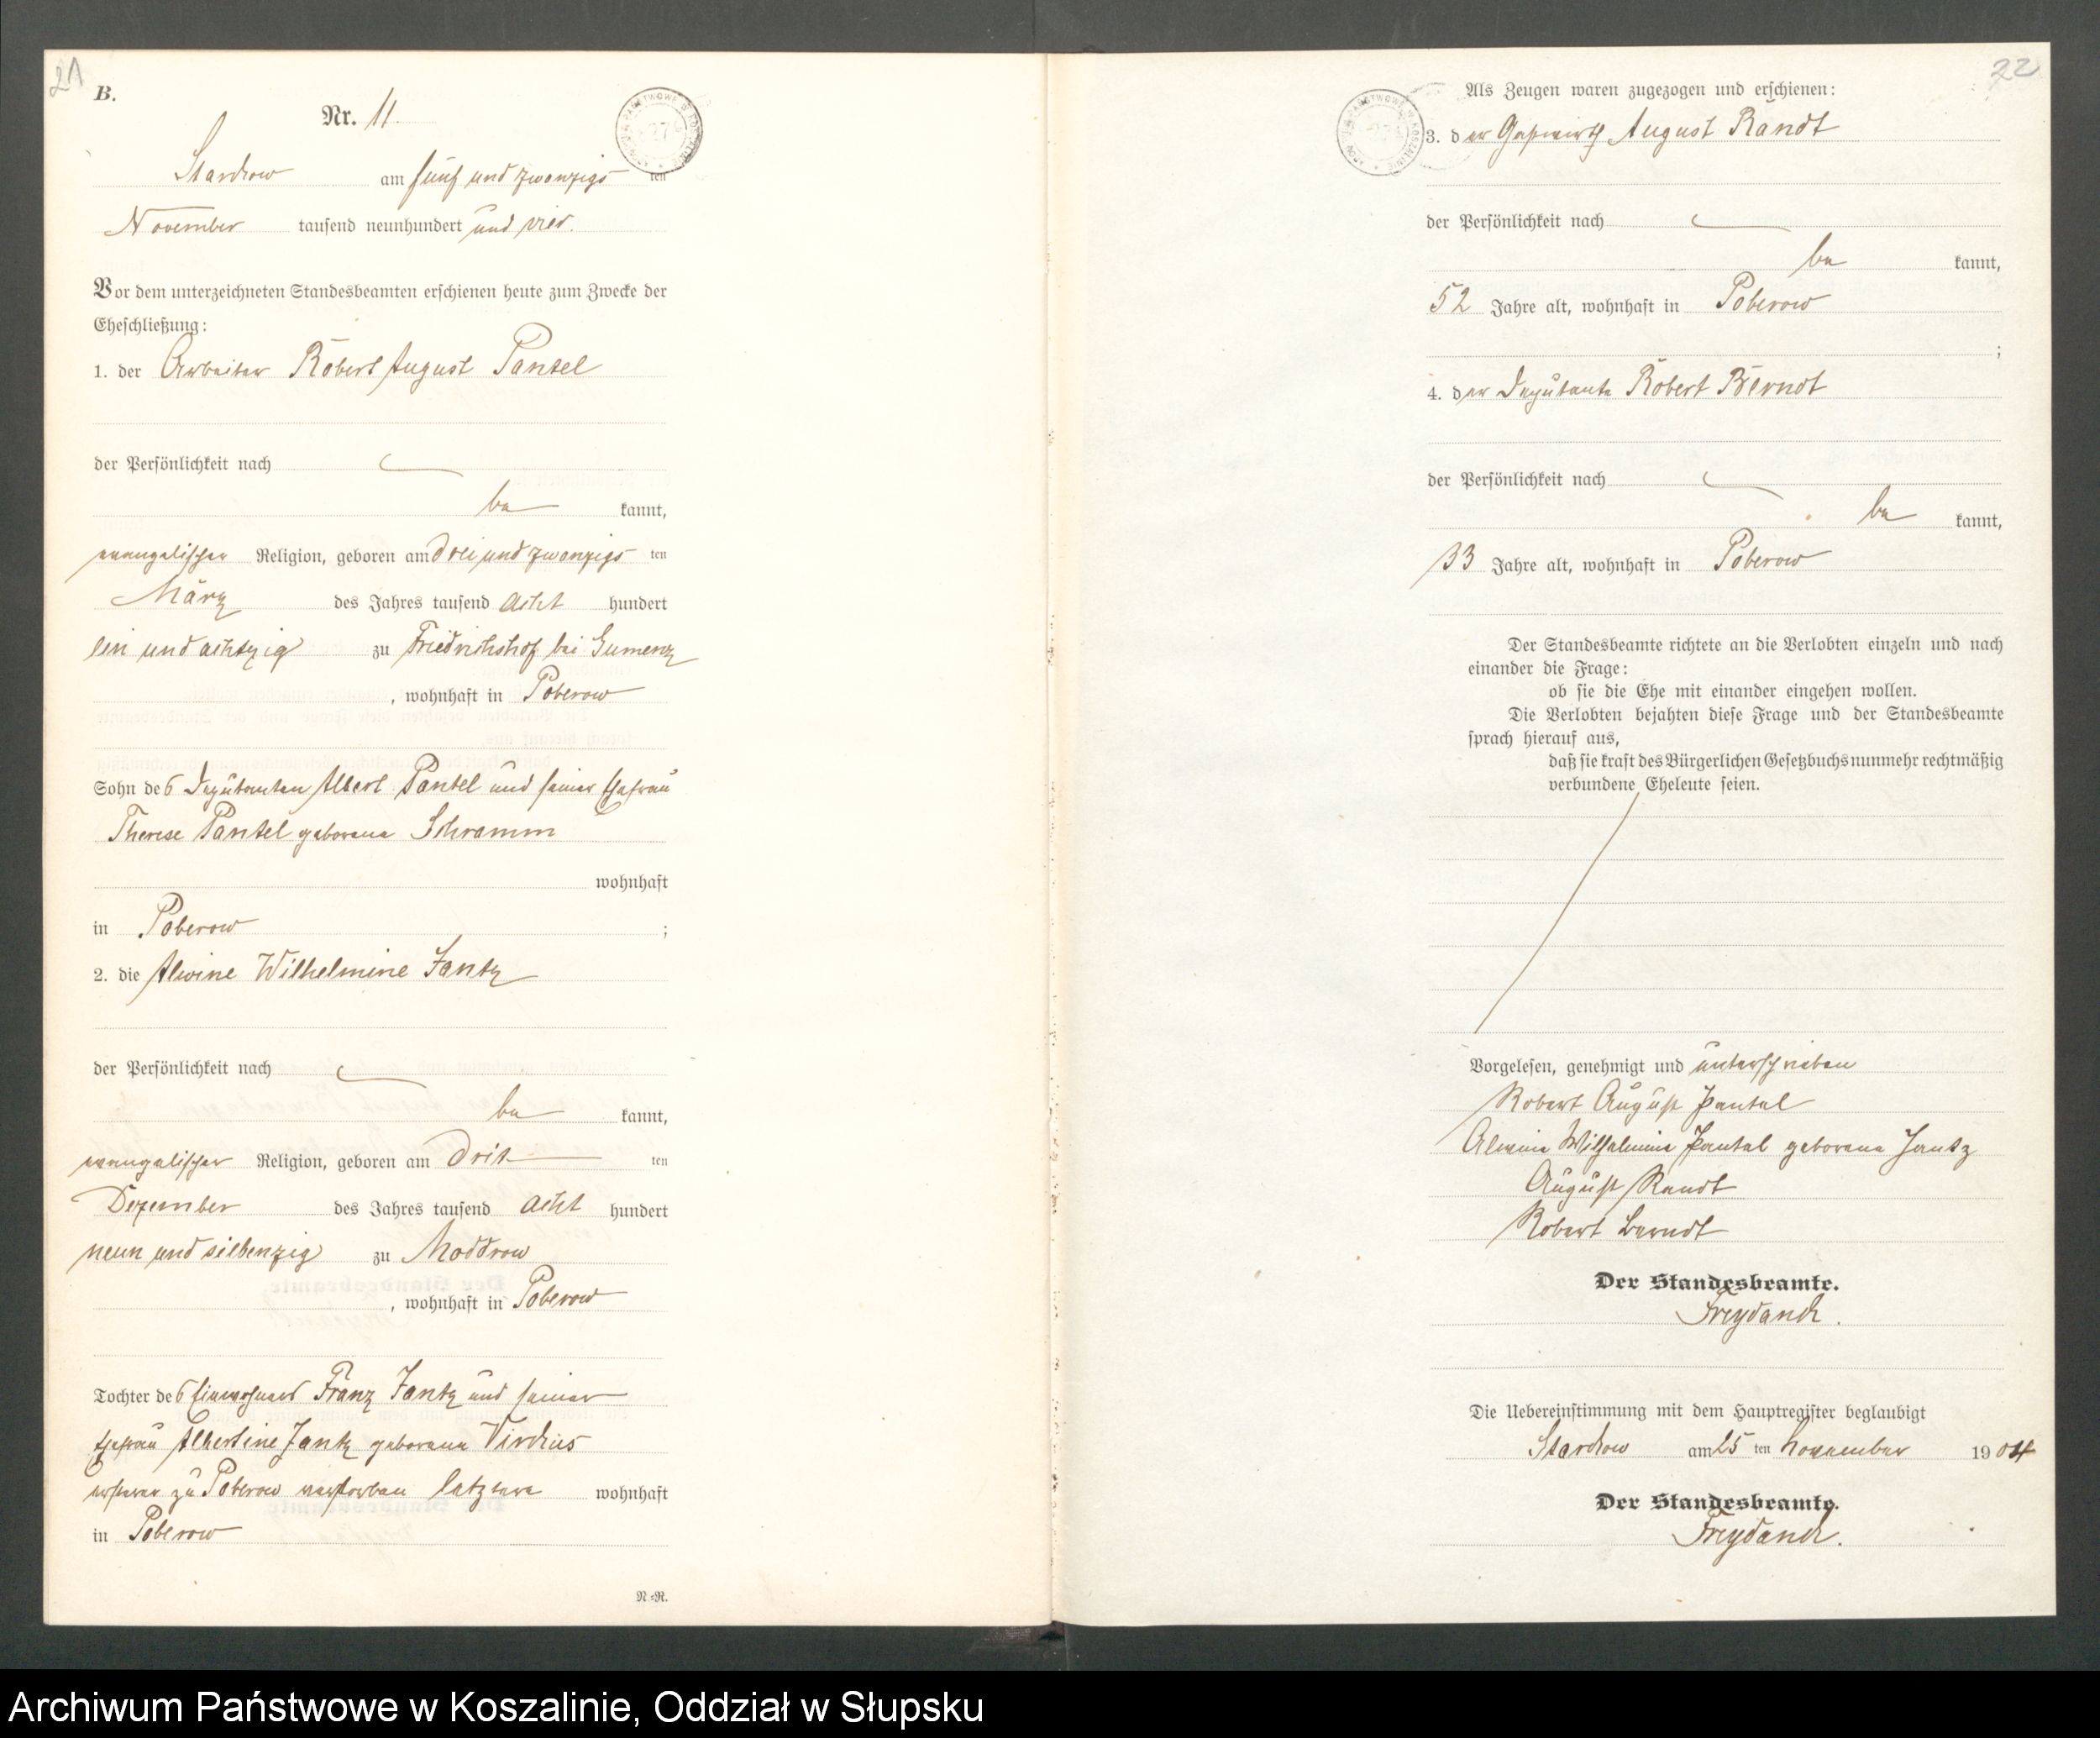 21
B.
Nr. 11.
Starckow am fünf und zwanzigs ten
November tausend neunhundert und vier.
Vor dem unterzeichneten Standesbeamten erschienen heute zum Zwecke der
Eheschließung:
1. der Arbeiter Robert August Pantel
der Persönlichkeit nach
be kannt,
evangelischer Religion, geboren am drei und zwanzigs ten
März des Jahres tausend acht hundert
ein und achtzig zu Friedrichshof bei Gumenz
, wohnhaft in Poberow
Sohn des Deputanten Albert Pantel und seiner Ehefrau
Therese Pantel geborene Schramm
wohnhaft
in Poberow ;
2. die Alwine Wilhelmine Jantz
der Persönlichkeit nach
be kannt,
evangelischer Religion, geboren am drit ten
Dezember des Jahres tausend acht hundert
neun und siebenzig zu Moddrow
, wohnhaft in Poberow
Tochter des Einwohners Franz Jantz und seiner
Ehefrau Albertine Jantz geborene Virchus
ersterer zu Poberow verstorben letztere wohnhaft
in Poberow
N.-R.
22
Als Zeugen waren zugezogen und erschienen:
3. der Gastwirth August Randt
der Persönlichkeit nach
be kannt,
52 Jahre alt, wohnhaft in Poberow
;
4. der Deputante Robert Berndt
der Persönlichkeit nach
be kannt,
33 Jahre alt, wohnhaft in Poberow
Der Standesbeamte richtete an die Verlobten einzeln und nach
einander die Frage:
ob sie die Ehe mit einander eingehen wollen.
Die Verlobten bejahten diese Frage und der Standesbeamte
sprach hierauf aus,
daß sie kraft des Bürgerlichen Gesetzbuchs nunmehr rechtmäßig
verbundene Eheleute seien.
Vorgelesen, genehmigt und unterschrieben
Robert August Pantel
Alwine Wilhelmine Pantel geborene Jantz
August Randt
Robert Berndt
Der Standesbeamte.
Freydanck.
Die Uebereinstimmung mit dem Hauptregister beglaubigt
Starckow am 25 ten November 1904
Der Standesbeamte.
Freydanck.
Archiwum Państwowe w Koszalinie, Oddział w Słupsku